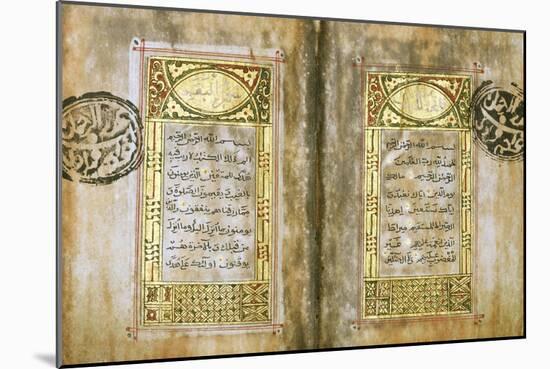 بسم الله الرحمن الرحيم
الحمد لله رب العلمين
الرحمن الرحيم مالك
يوم الدين اياك نعبد و
اياك نستعين اهدنا
الصراط المستقيم صراط
الذين انعمت عليهم غير
المغضوب عليهم ولا الضالين
بسم الله الرحمن الرحيم
الم ذلك الكتب لا ريب فيه
هدى للمتقين الذين يؤمنون
بالغيب ويقيمون الصلوة و
مما رزقناهم ينفقون والذين
يؤمنون بما انزل اليك وما انزل
من قبلك وبالاخرة هم
يوقنون اولئك على هدى